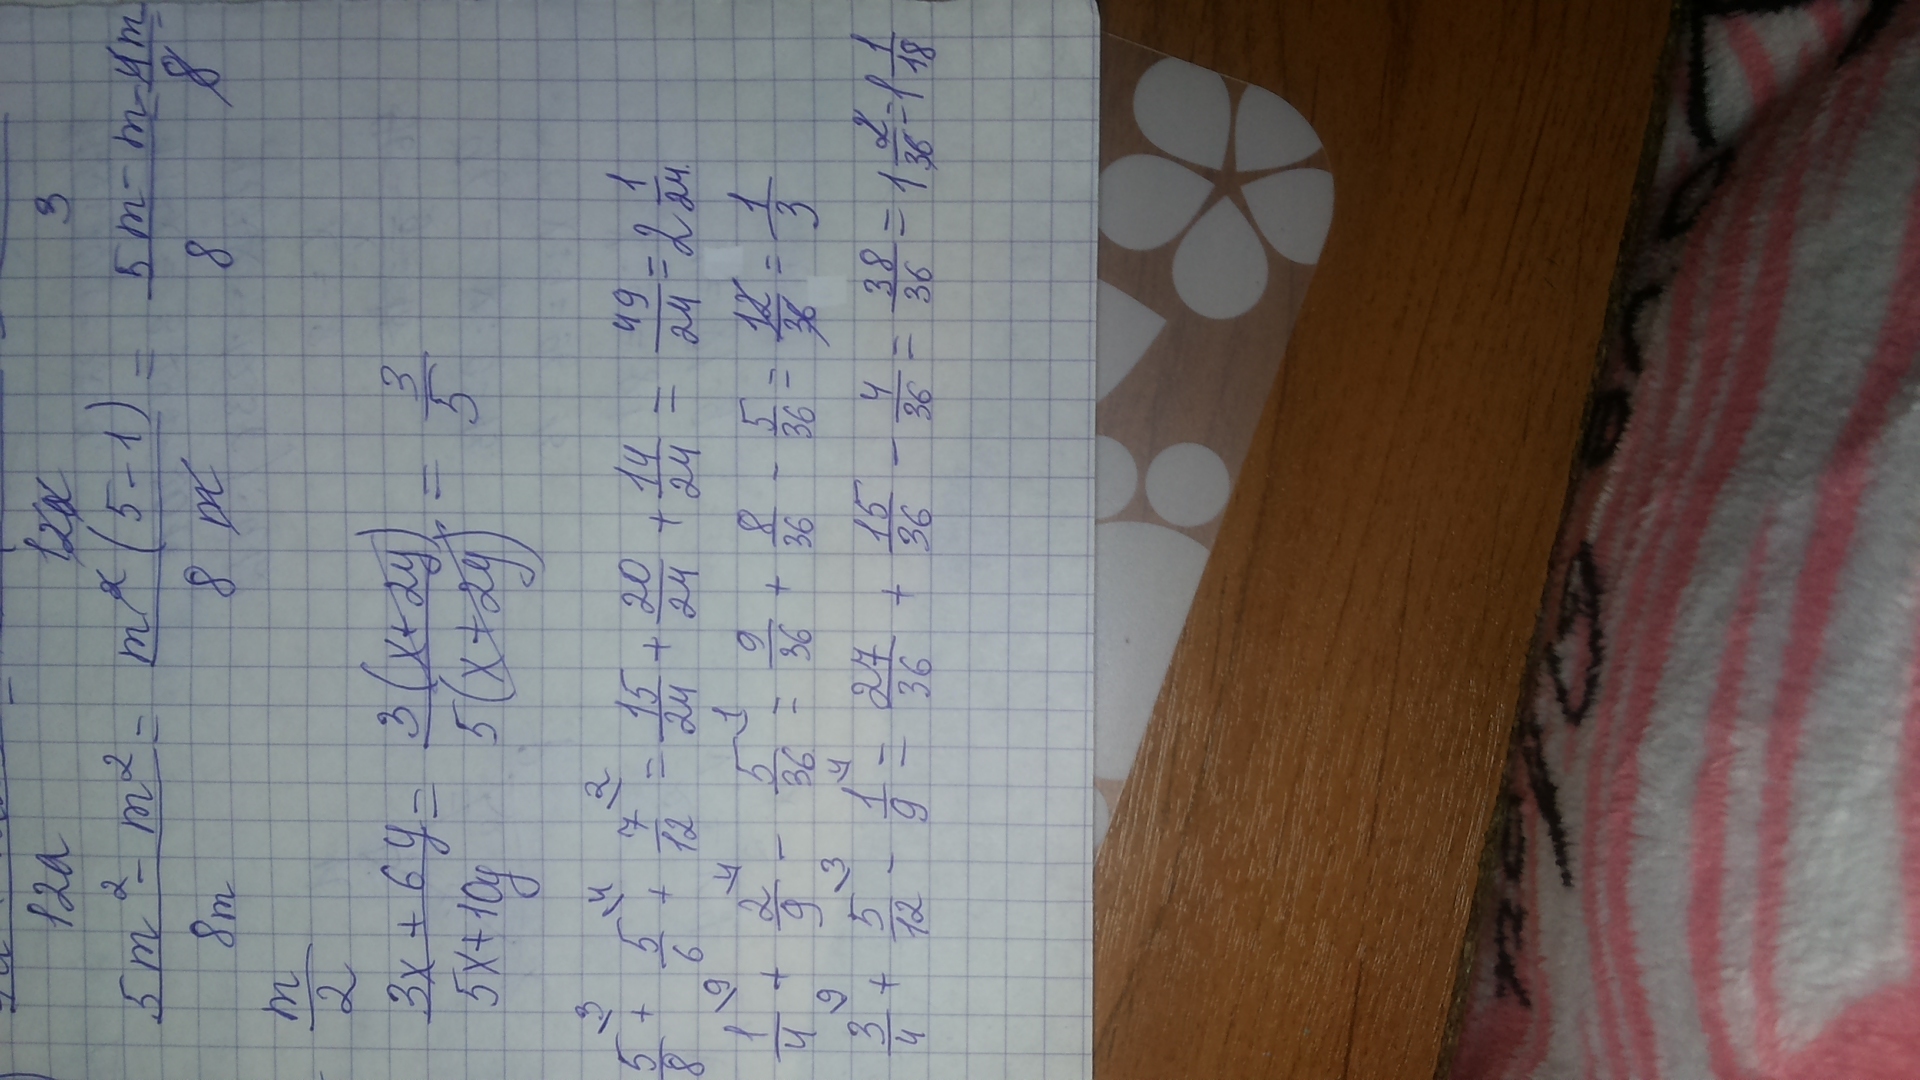 12a 12x 3
5m² - m² / 8m = m² (5-1) / 8m = 5m - m / 8 = m - 4m / 8
m/2
3x + 6y / 5x + 10y = 3(x+2y) / 5(x+2y) = 3/5
5/8 \3 + 5/6 \4 + 7/12 \2 = 15/24 + 20/24 + 14/24 = 49/24 = 2 1/24
1/4 \9 + 2/9 \4 - 5/36 \1 = 9/36 + 8/36 - 5/36 = 12/36 = 1/3
3/4 \9 + 5/12 \3 - 1/9 \4 = 27/36 + 15/36 - 4/36 = 38/36 = 1 2/36 = 1 1/18